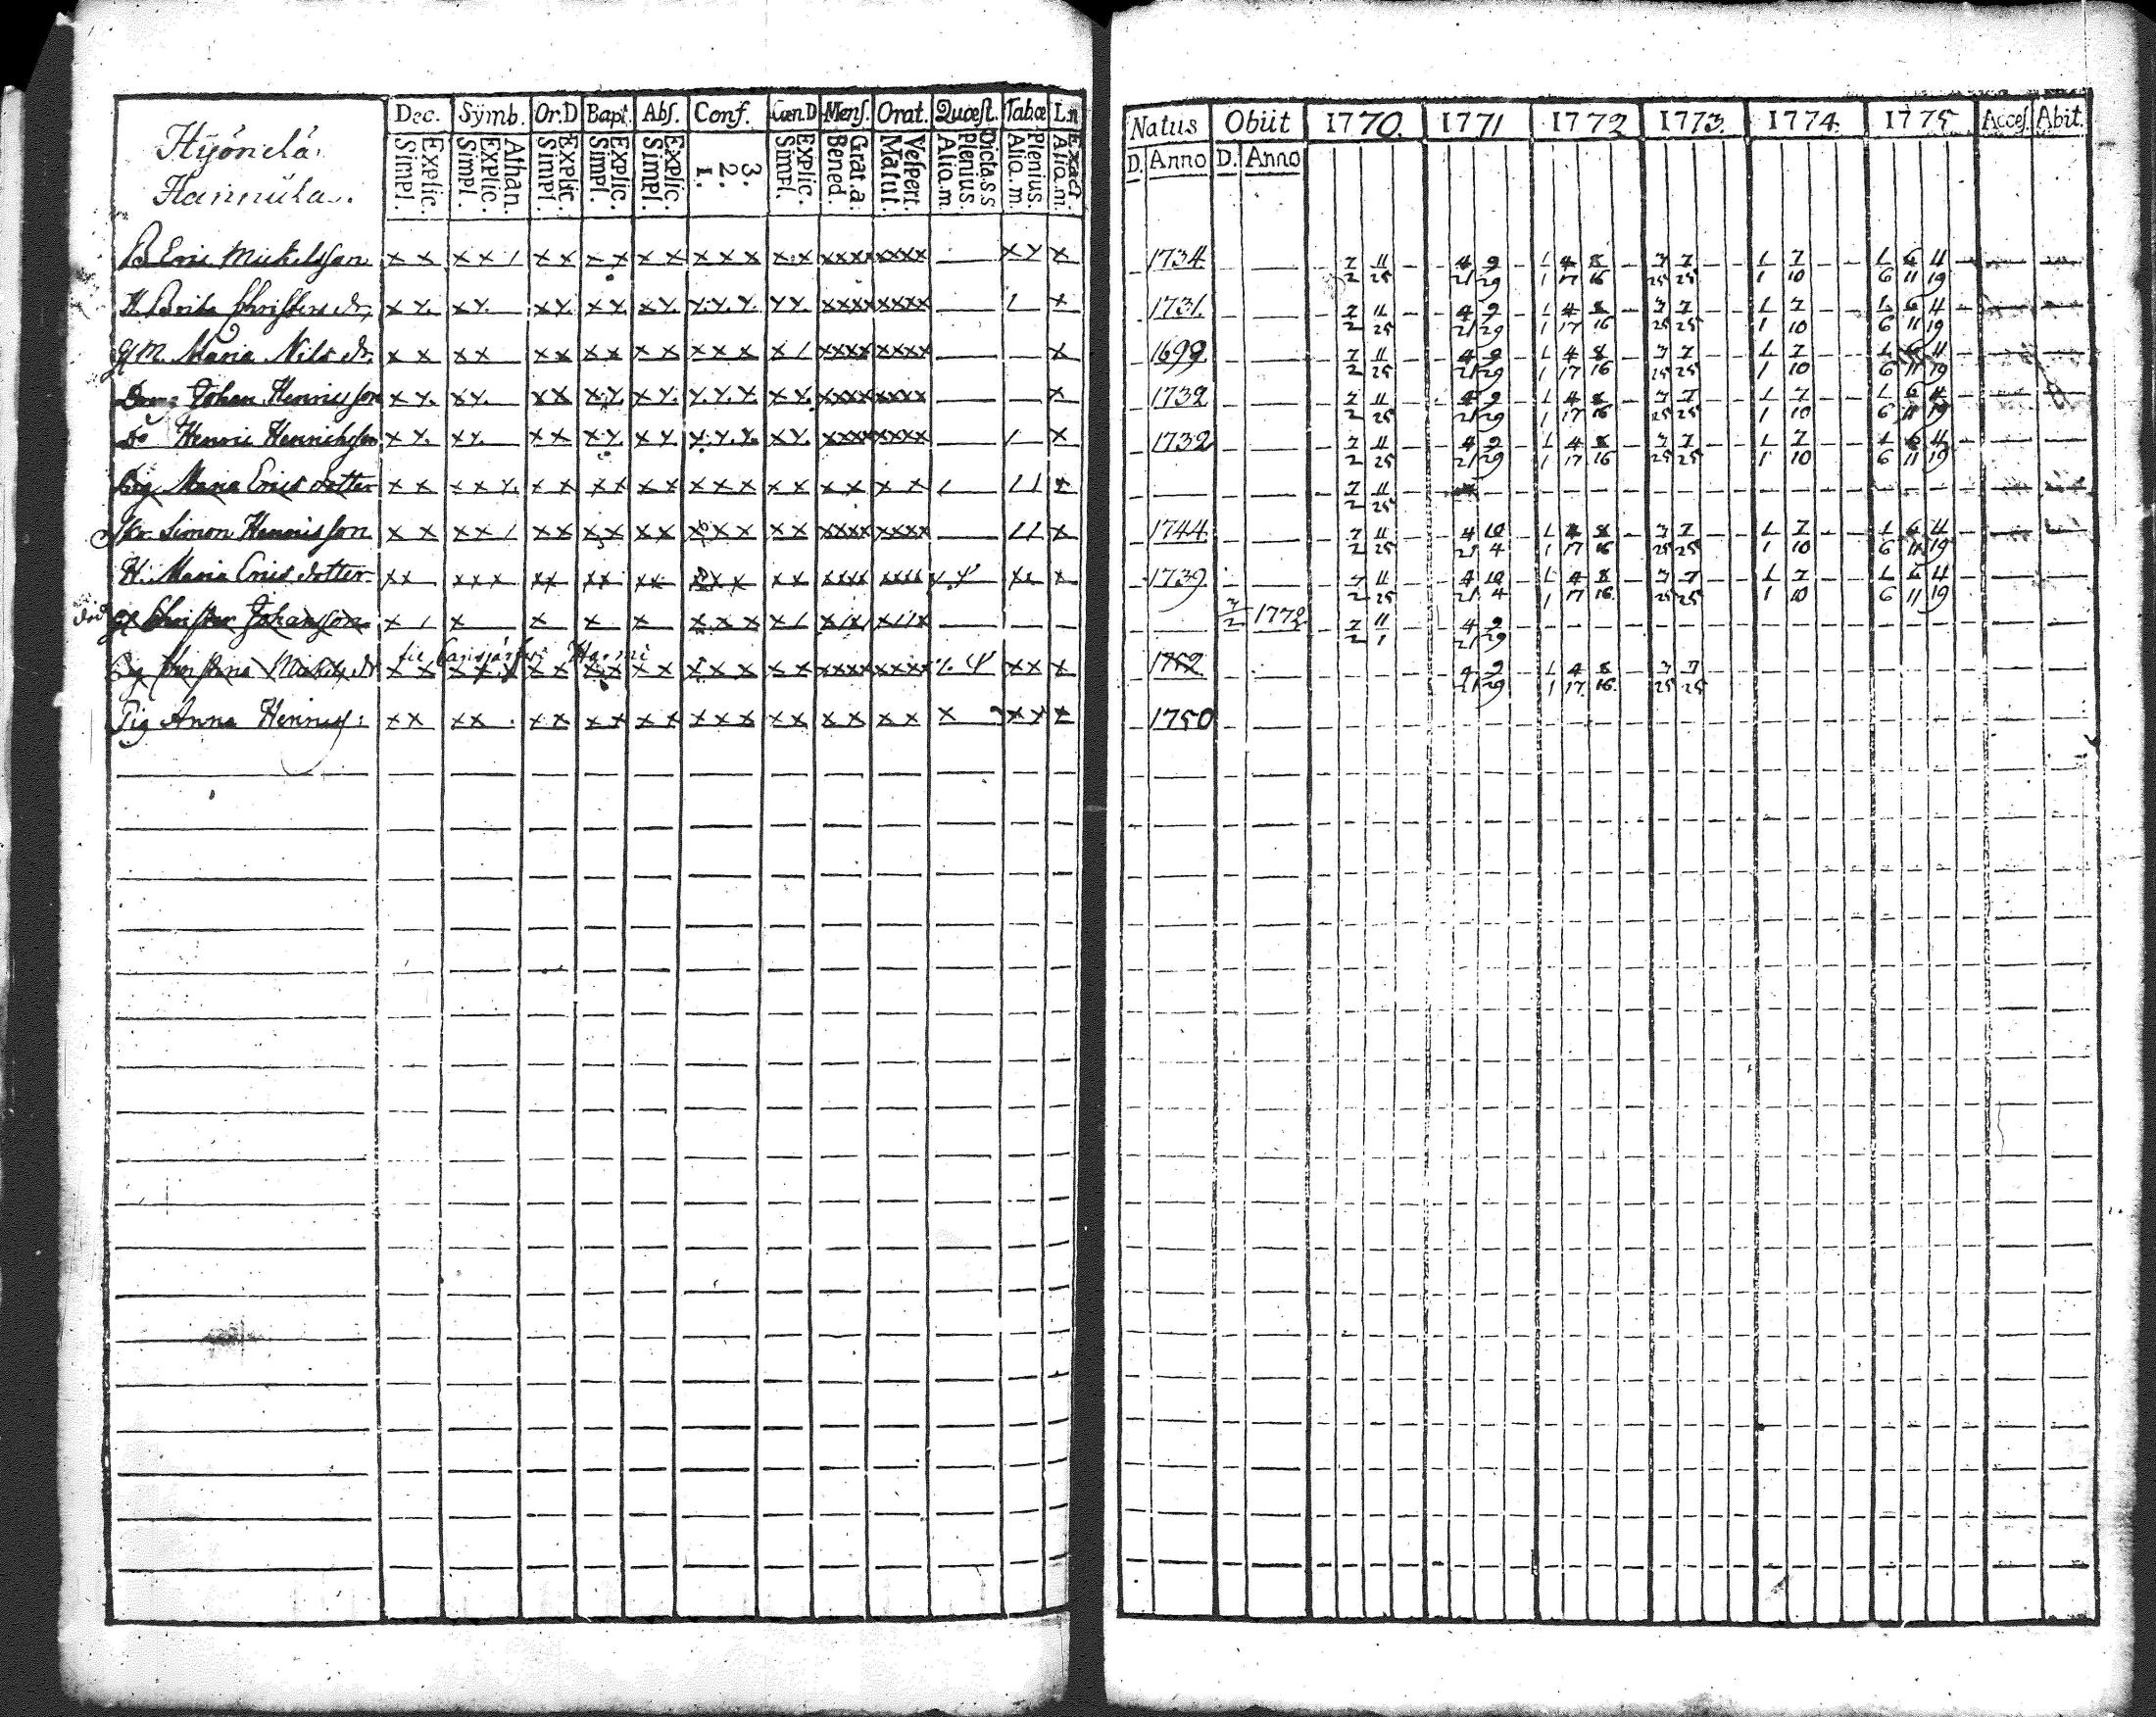 Dec. Sÿmb. Or.D Bapt. Abs. Conf. Cœn.D Mens. Orat. Quœst. Tab.œ L.n
Hÿönelä
Hannula.
Simpl. Explic. Simpl. Explic. Athan. Simpl. Explic. Simpl. Explic. Simpl. Explic. 1. 2. 3. Simpl. Explic. Bened. Grat.a. Matut. Vespert. Aliq.m. Plenius. Dicta.s.s Aliq.m. Plenius. Aliq.m. Exact.
B Eric Michelsson
H Brita Christers dr
M. Maria Nils dr.
Johan Henricsson
Do Henric Henrichsson
Pig Maria Erics dotter
Simon Henricsson
H. Maria Erics dotter
död Christer Johansson
Pig Christina Michels dr
Pig Anna Henrics:
Natus Obiit 1770. 1771 1772 1773. 1774. 1775. Acces. Abit.
D. Anno D. Anno
1734 7 11 4 9 1 4 8 7 7 1 7 1 6 11
2 25 21 29 1 17 16 25 25 1 10 6 11 19
1731 2 11 4 9 1 4 8 7 7 1 7 1 6 11
2 25 21 29 1 17 16 25 25 1 10 6 11 19
1699 7 11 4 9 1 4 8 7 7 1 7 1 6 11
2 25 21 29 1 17 16 25 25 1 10 6 11 19
1732 7 11 4 9 1 4 8 7 7 1 7 1 6 11
2 25 21 29 1 17 16 25 25 1 10 6 11 19
1732 7 11 4 9 1 4 8 7 7 1 7 1 6 11
2 25 21 29 1 17 16 25 25 1 10 6 11 19
7 11
2 25
1744 7 11 4 10 1 4 8 7 7 1 7 1 6 11
2 25 21 4 1 17 16 25 25 1 10 6 11 19
1739 7 11 4 10 1 4 8 7 7 1 7 1 6 11
2 25 21 4 1 17 16 25 25 1 10 6 11 19
1772 7 11 4 9
2 1 21 29
1752 4 9 1 4 8 7 7
21 29 1 17 16 25 25
1750